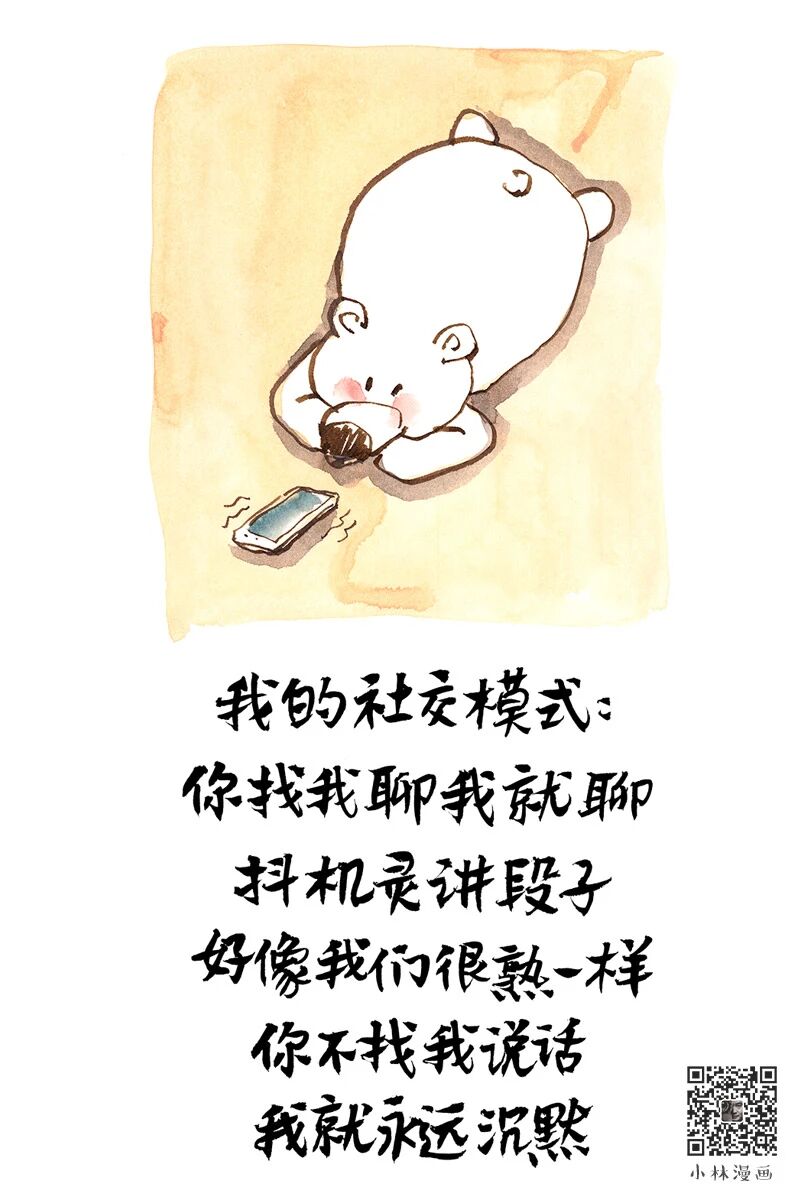 我的社交模式:
你找我聊我就聊
抖机灵讲段子
好像我们很熟一样
你不找我说话
我就永远沉默
小林漫画